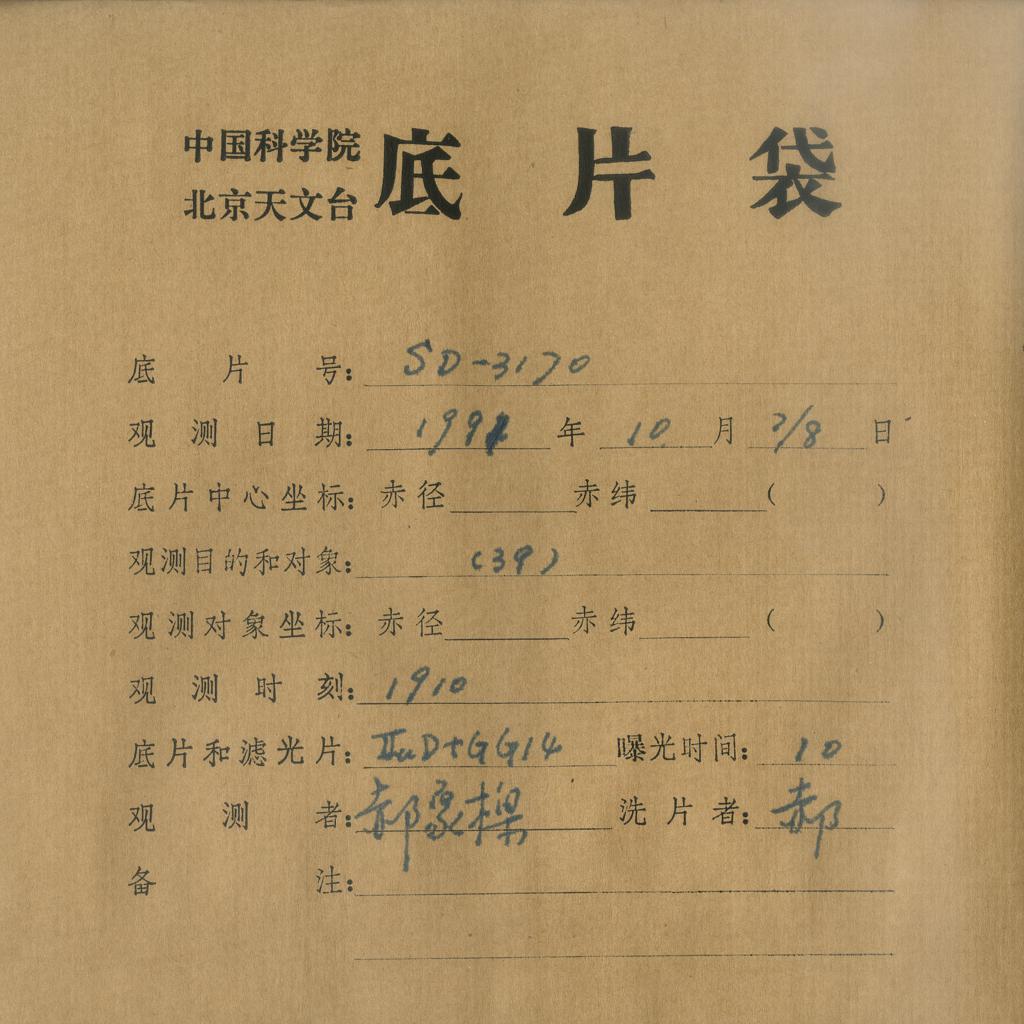 中国科学院
北京天文台
底片袋
底片号：SD-3170
观测日期：1991年10月7/8日
底片中心坐标：赤径 赤纬 （ ）
观测目的和对象：（39）
观测对象坐标：赤径 赤纬 （ ）
观测时刻：1910
底片和滤光片：IIaD+GG14 曝光时间：10
观测者：郝象樑 洗片者：郝
备注：